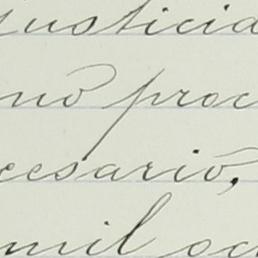 justicia
no proc
cesario,
mil oc